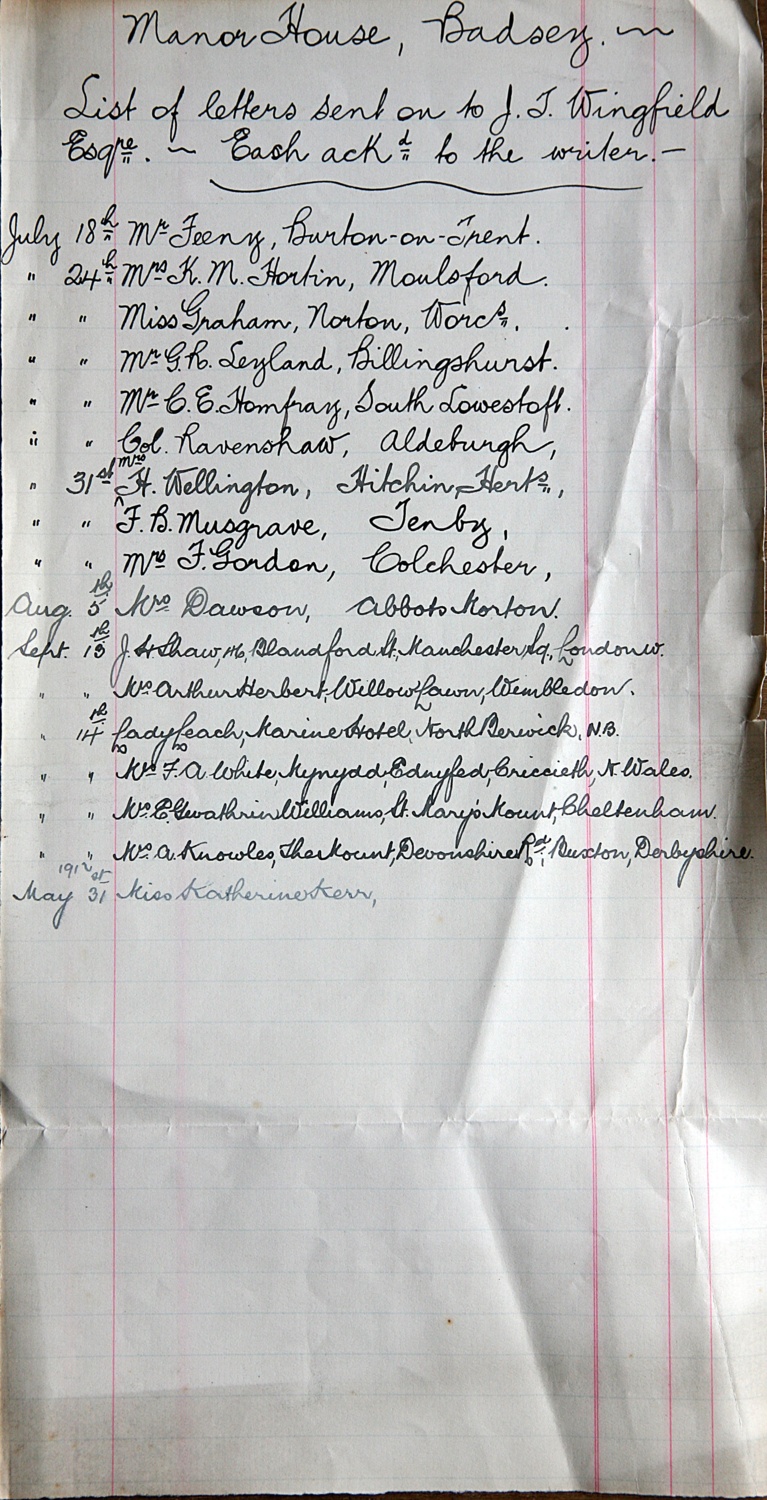 Manor House, Badsey. ~
List of letters sent on to J. T. Wingfield
Esqre. ~ Each ackd to the writer. —
July 18th Mr Feeny, Burton-on-Trent.
" 24th Mrs K. M. Hortin, Moulsford.
" " Miss Graham, Norton, Worcs.
" " Mr G. R. Leyland, Billingshurst.
" " Mr C. E. Homfray, South Lowestoft.
" " Col. Ravenshaw, Aldeburgh,
" 31st Mrs H. Wellington, Hitchin, Herts,
" " F. B. Musgrave, Tenby,
" " Mrs F. Gordon, Colchester,
Aug. 5th Mrs Dawson, Abbots Morton.
Sept. 13th J. H. Shaw, 16, Blandford St, Manchester Sq, London W.
" " Mrs Arthur Herbert, Willow Lawn, Wimbledon.
" 14th Lady Leach, Marine Hotel, North Berwick, N.B.
" " Mrs F. A. White, Mynydd, Ednyfed, Criccieth, N. Wales.
" " Mrs E. Gwathrin Williams, St. Mary's Mount, Cheltenham.
" " Mrs A. Knowles, The Mount, Devonshire Rd, Buxton, Derbyshire.
1912
May 31st Miss Katherine Kerr,